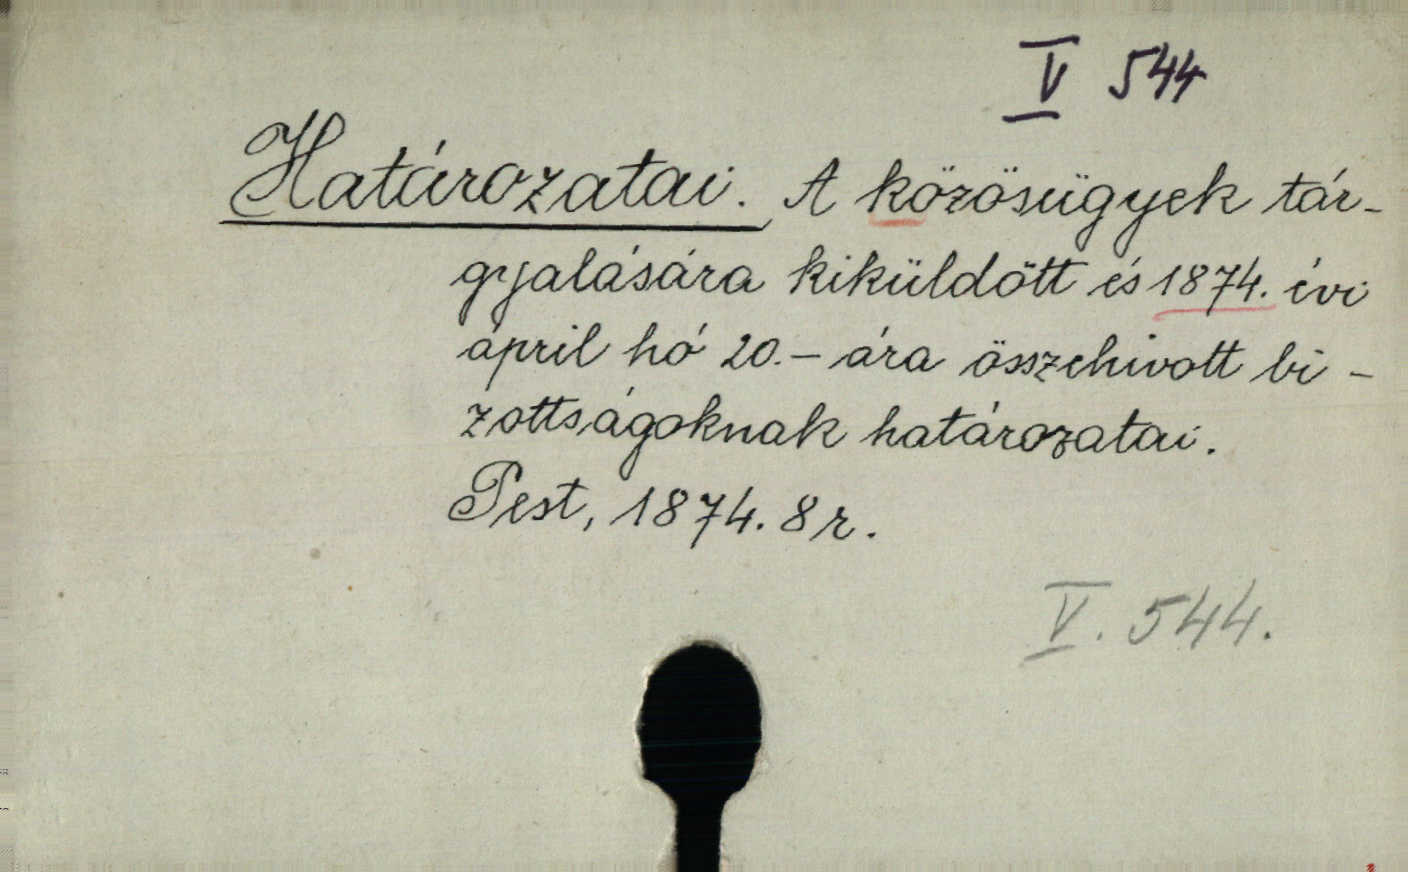 V 544
Határozatai. A közösügyek tár-
gyalására kiküldött és 1874. évi
ápril hó 20.- ára összehivott bi-
zottságoknak határozatai.
Pest, 1874. 8r.
V. 544.